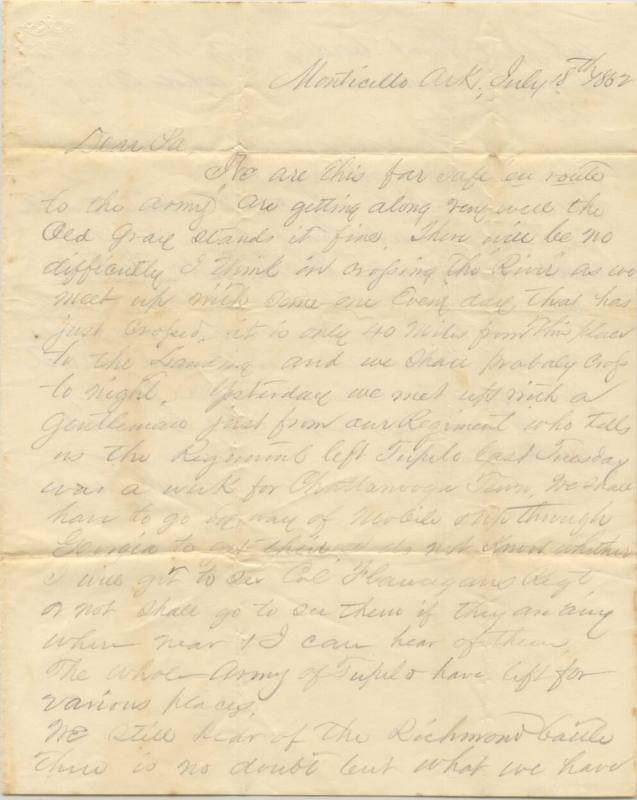 Monticello Ark, July 18th 1862
Dear Pa,
We are this far safe en route
to the army, are getting along very well the
Old Gray stands it fine. There will be no
difficulty I think in crossing the River as we
meet up with some one Every day that has
just Crossed. it is only 40 Miles from this place
to the Landing and we shall probaly Cross
to night. Yesterday we met up with a
Gentleman just from our Regiment who tells
us the Regiment left Tupelo last Tuesday
was a week for Chattanooga Tenn, We shall
have to go by way of Mobile & up through
Georgia to get there. I do not Know whether
I will get to see Col Flanagans Regt,
or not shall go to see them if they are any
where near & I can hear of them.
The whole Army of Tupelo have left for
various places.
We still hear of the Richmond battle
there is no doubt but what we have